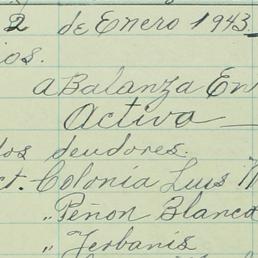 2 de Enero 1943.
ios.
a Balanza En
Activa
los deudores.
ct. Colonia Luis
" Peñon Blanco
" Yerbanis